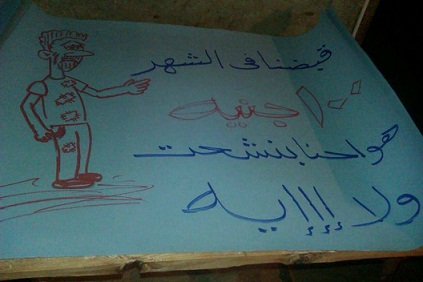 قبضنا فى الشهر
١٠٠ جنيه
هو احنا بنشحت
ولا إإإايه